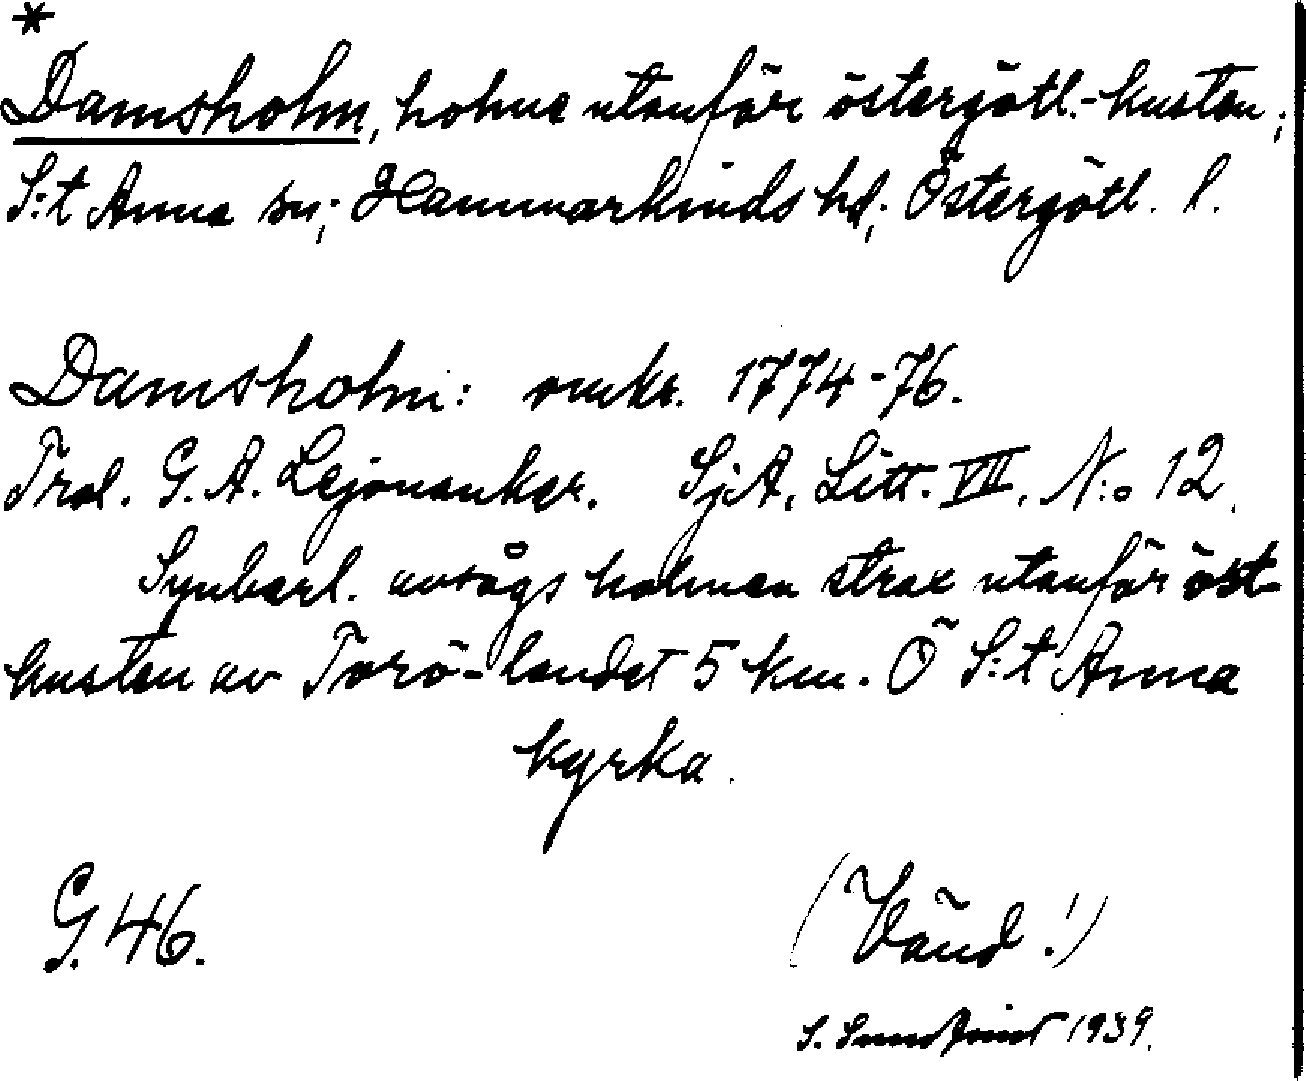 *
Damsholm, holme utanför östergötl.-kusten;
S:t Anna sn; Hammarkinds hd; Östergötl. l.
Damsholm: omkr. 1774-76.
Trol. G. A. Lejonanker. SjA. Litt. VII. N:o 12.
Synbarl. avsågs holmen strax utanför öst-
kusten av Torö-landet 5 km. Ö S:t Anna
kyrka.
G. 46.
(Vänd!)
S. 1939.